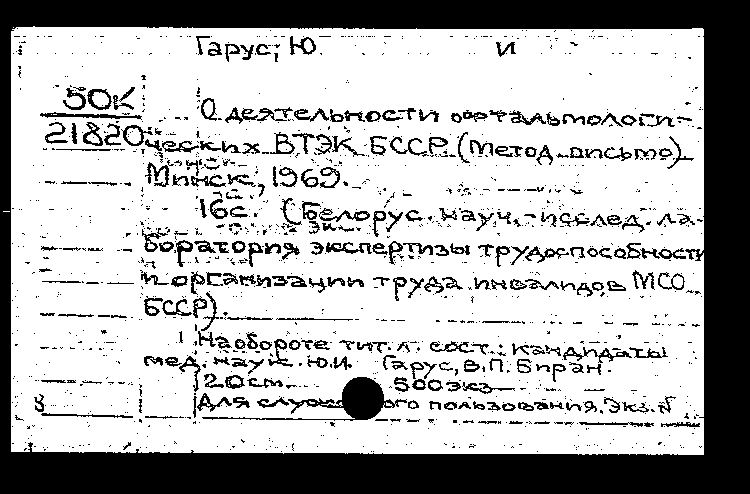 Гарус, Ю. И
50К
21820
О деятельности офтальмологи-
ческих ВТЭК БССР. (Метод. письмо).
Минск, 1969.
16с. (Белорус. науч.-исслед. ла-
боратория экспертизы трудоспособности
и организации труда инвалидов МСО
БССР).
На обороте тит. л. сост.: кандидаты
мед. наук Ю.И. Гарус, В.П. Биран.
20см. 500экз.
Для служ ого пользования. Экз. №